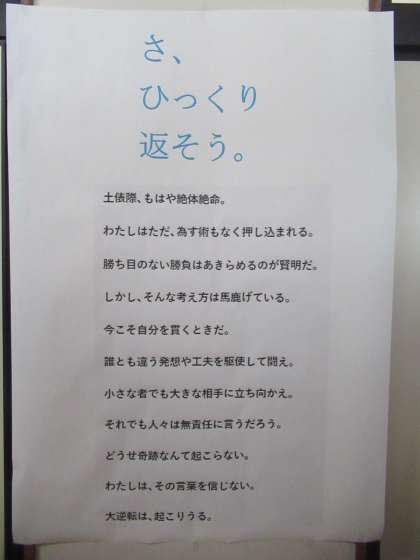 さ、
ひっくり
返そう。
土俵際、もはや絶体絶命。
わたしはただ、為す術もなく押し込まれる。
勝ち目のない勝負はあきらめるのが賢明だ。
しかし、そんな考え方は馬鹿げている。
今こそ自分を貫くときだ。
誰とも違う発想や工夫を駆使して闘え。
小さな者でも大きな相手に立ち向かえ。
それでも人々は無責任に言うだろう。
どうせ奇跡なんて起こらない。
わたしは、その言葉を信じない。
大逆転は、起こりうる。